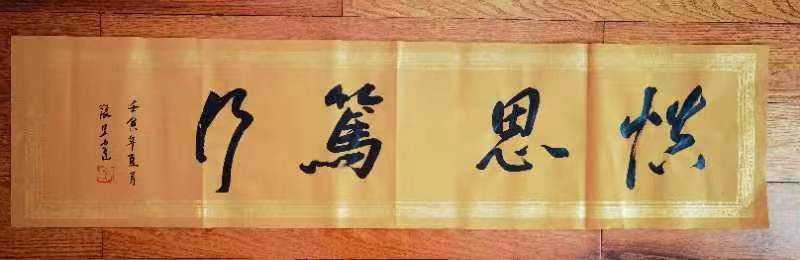 慎思篤行
壬寅年夏月
張